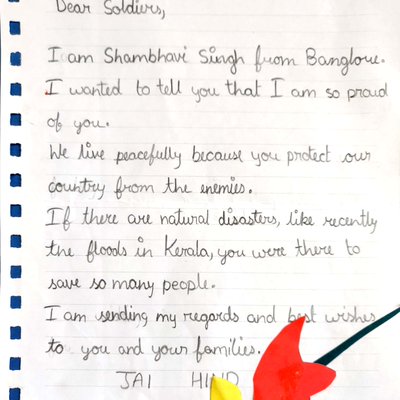 Dear Soldiers,
I am Shambhavi Singh from Banglore.
I wanted to tell you that I am so proud
of you.
We live peacefully because you protect our
country from the enemies.
If there are natural disasters, like recently
the floods in Kerala, you were there to
save so many people.
I am sending my regards and best wishes
to you and your families.
JAI HIND